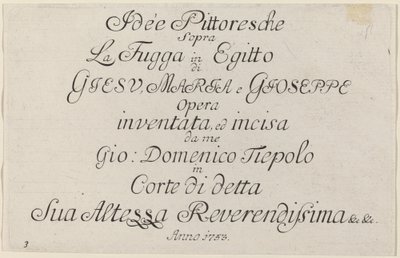 Idée Pittoresche
Sopra
La Fugga in Egitto
di
GIESV, MARIA e GIOSEPPE
Opera
inventata, ed incisa
da me
Gio: Domenico Tiepolo
in
Corte di detta
Sua Altessa Reverendissima &c. &c.
Anno 1753.
3